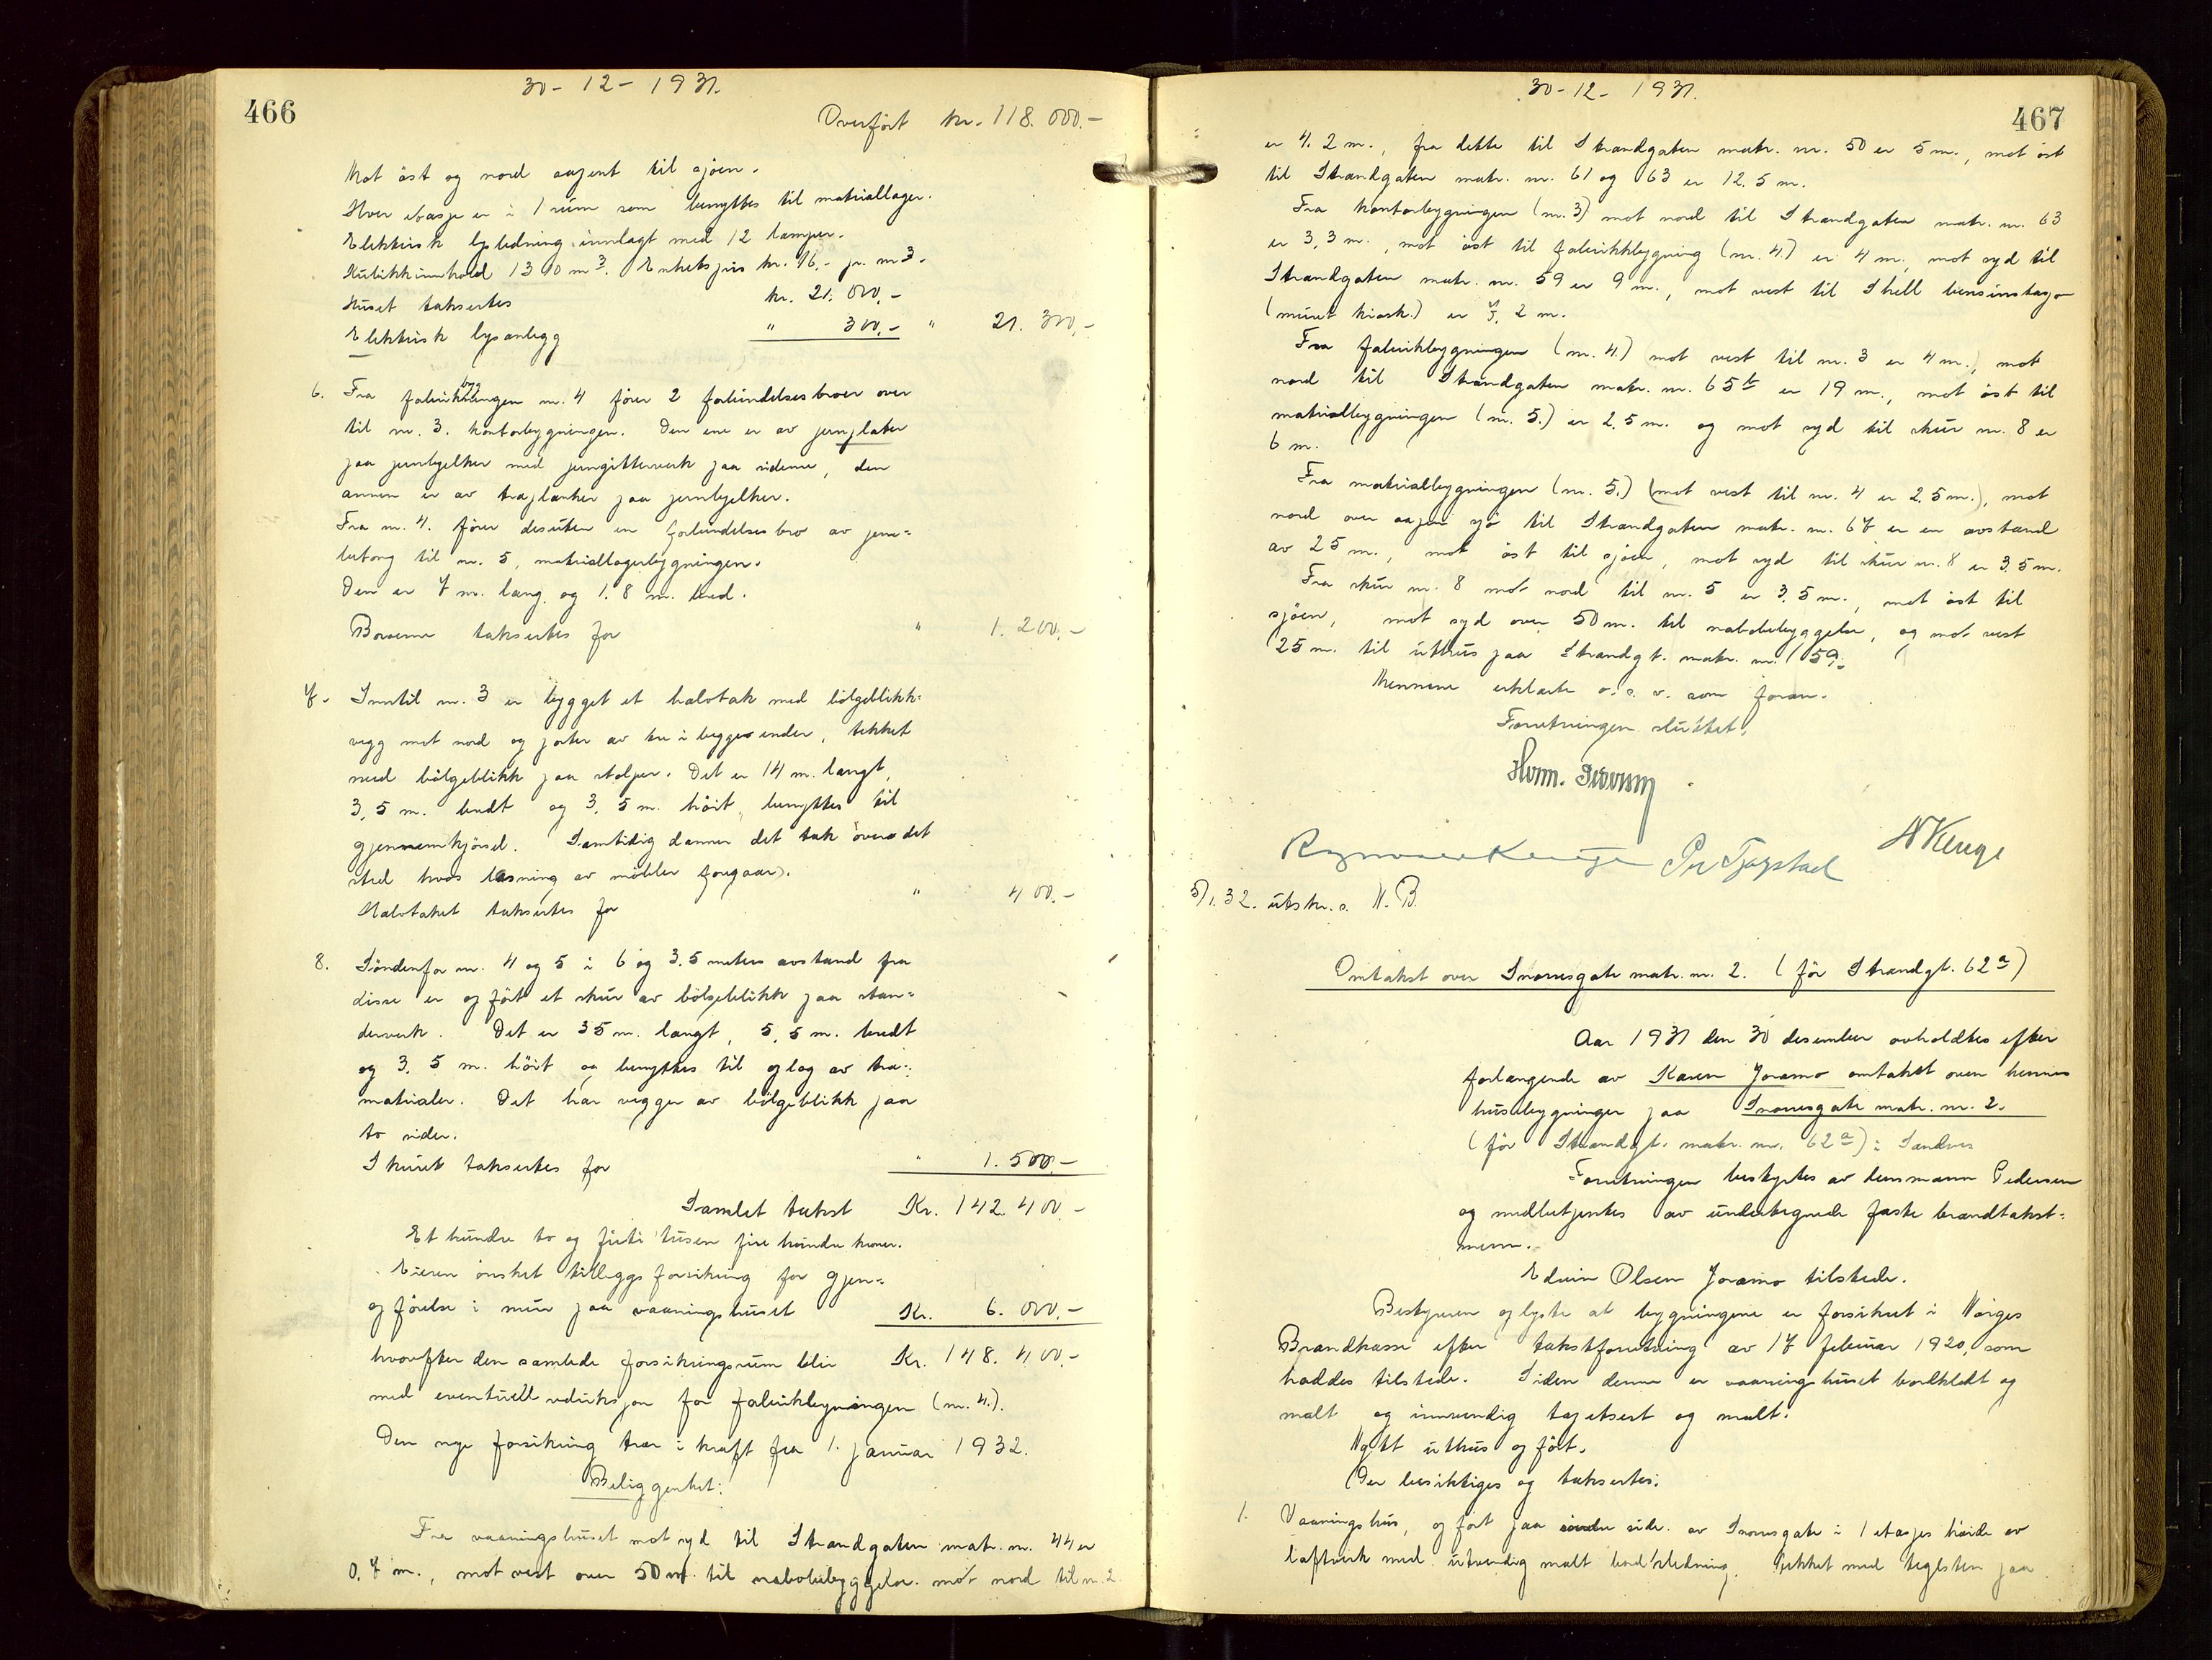 30-12-1931.
466
Overført kr. 118.000.-
Mot øst og nord aapent til sjøen.
Hver etasje er i 1 rum som benyttes til materiallager.
Elektrisk lysledning innlagt med 12 lamper.
Kubikkinnhold 1310 m3. Enhetspris kr. 16,- pr. m3.
Huset takseres kr. 21.000,-
Elektrisk lysanlegg " 300,- " 21.300,-
6. Fra fabrikkbygningen nr. 4 fører 2 forbindelsesbroer over
til nr. 3. kontorbygningen. Den ene er av jernplater
paa jernbjelker med jerngitterverk paa siderne, den
annen er av træplanker paa jernbjelker.
Fra nr. 4. fører desuten en forbindelsesbro av jern=
betong til nr. 5, materiallagerbygningen.
Den er 7 m. lang og 1.8 m. bred.
Broerne takseres for " 1.200,-
7. Inntil nr. 3 er bygget et halvtak med bølgeblikk=
vegg mot nord og porter av tre i begge ender, tekket
med bølgeblikk paa stolper. Det er 14 m. langt,
3,5 m. bredt og 3,5 m. høit, benyttes til
gjennemkjørsel. Samtidig danner det tak over det
sted hvor lasning av møbler foregaar.
Halvtaket takseres for " 400.-
8. Søndenfor nr. 4 og 5 i 6 og 3.5 meters avstand fra
disse er opført et skur av bølgeblikk paa sten=
derverk. Det er 35 m. langt, 5,5 m. bredt
og 3.5 m. høit og benyttes til oplag av træ=
materialer. Det har vegger av bølgeblikk paa
to sider.
Skuret takseres for " 1.500.-
Samlet takst Kr. 142.400.-
Et hundre to og firti tusen fire hundre kroner.
Eieren ønsket tilleggsforsikring for gjen=
opførelse i mur paa vaaningshuset Kr. 6.000.-
hvorefter den samlede forsikringssum blir Kr. 148.400.-
med eventuell reduksjon for fabrikkbygningen (nr. 4.).
Den nye forsikring trær i kraft fra 1. januar 1932.
Beliggenhet:
Fra vaaningshuset mot syd til Strandgaten matr. nr. 44 er
0.7 m., mot vest over 50 m. til nabobebyggelse. mot nord til nr. 2
30-12-1931.
467
er 4.2 m., fra dette til Strandgaten matr. nr. 50 er 5 m., mot øst
til Strandgaten matr. nr. 61 og 63 er 12.5 m.
Fra kontorbygningen (nr. 3) mot nord til Strandgaten matr. nr. 63
er 3,3 m., mot øst til fabrikkbygning (nr. 4.) er 4 m, mot syd til
Strandgaten matr. nr. 59 er 9 m., mot vest til Shell bensinstasjon
(muret kiosk.) er 7.2 m.
Fra fabrikbygningen (nr. 4.) mot vest til nr. 3 er 4 m., mot
nord til Strandgaten matr. nr. 65b er 19 m., mot øst til
materialbygningen (nr. 5.) er 2,5 m. og mot syd til skur nr. 8 er
6 m.
Fra materialbygningen (nr. 5.) (mot vest til nr. 4 er 2.5 m.), mot
nord over aapen sjø til Strandgaten matr. nr. 67 er en avstand
av 25 m., mot øst til sjøen, mot syd til skur nr. 8 er 3.5 m.
Fra skur nr. 8 mot nord til nr. 5 er 3.5 m., mot øst til
sjøen, mot syd over 50 m. til nabobebyggelse, og mot vest
25 m. til uthus paa Strandgt. matr. nr. 59.
Mennene erklærte o.s.v. som foran.
Forretningen sluttet.
5/1.32. utskr. s. N.B.
Omtakst over Snorresgate matr. nr. 2. (før Strandgt. 62a)
Aar 1931 den 30 desember avholdtes efter
forlangende av Karen Joramo omtakst over hennes
husebygninger paa Snorresgate matr. nr. 2.
(før Strandgt. matr. nr. 62a) i Sandnes
Forretningen bestyrtes av lensmann Pedersen
og medbetjentes av undertegnede faste brandtakst=
menn.
Edvin Olsen Joramo tilstede.
Bestyreren oplyste at bygningene er forsikret i Norges
Brandkasse efter takstforretning av 17 februar 1920, som
haddes tilstede. Siden denne er vaaningshuset bordkledt og
malt og innvendig tapetsert og malt.
Nytt uthus opført.
Der besiktiges og takseres:
1. Vaaningshus, opført paa søndre side av Snorresgate i 1 etasjes høide av
laftverk med utvendig malt bordkledning. Tekket med teglsten paa